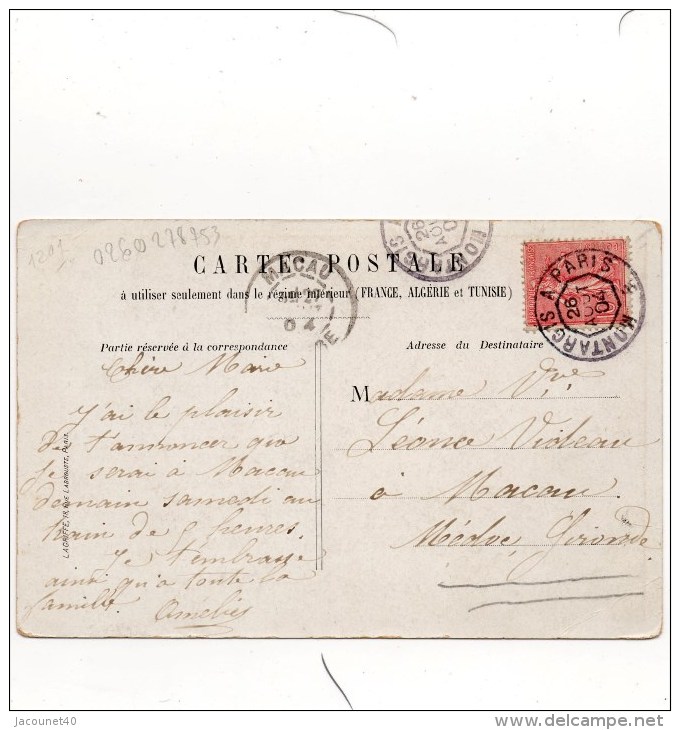 0260278753
CARTE POSTALE
à utiliser seulement dans le régime intérieur (FRANCE, ALGÉRIE et TUNISIE)
MACAU
04
MONTARGIS A PARIS
26
AOUT
04
Partie réservée à la correspondance
Adresse du Destinataire
Chère Marie
J'ai le plaisir
de t'annoncer que
je serai à Macau
demain samedi au
train de 5 heures.
Je t'embrasse
ainsi qu'à toute la
famille
Madame Vve
Léonce Videau
à Macau
Médoc, Gironde
jacounet40
www.delcampe.net